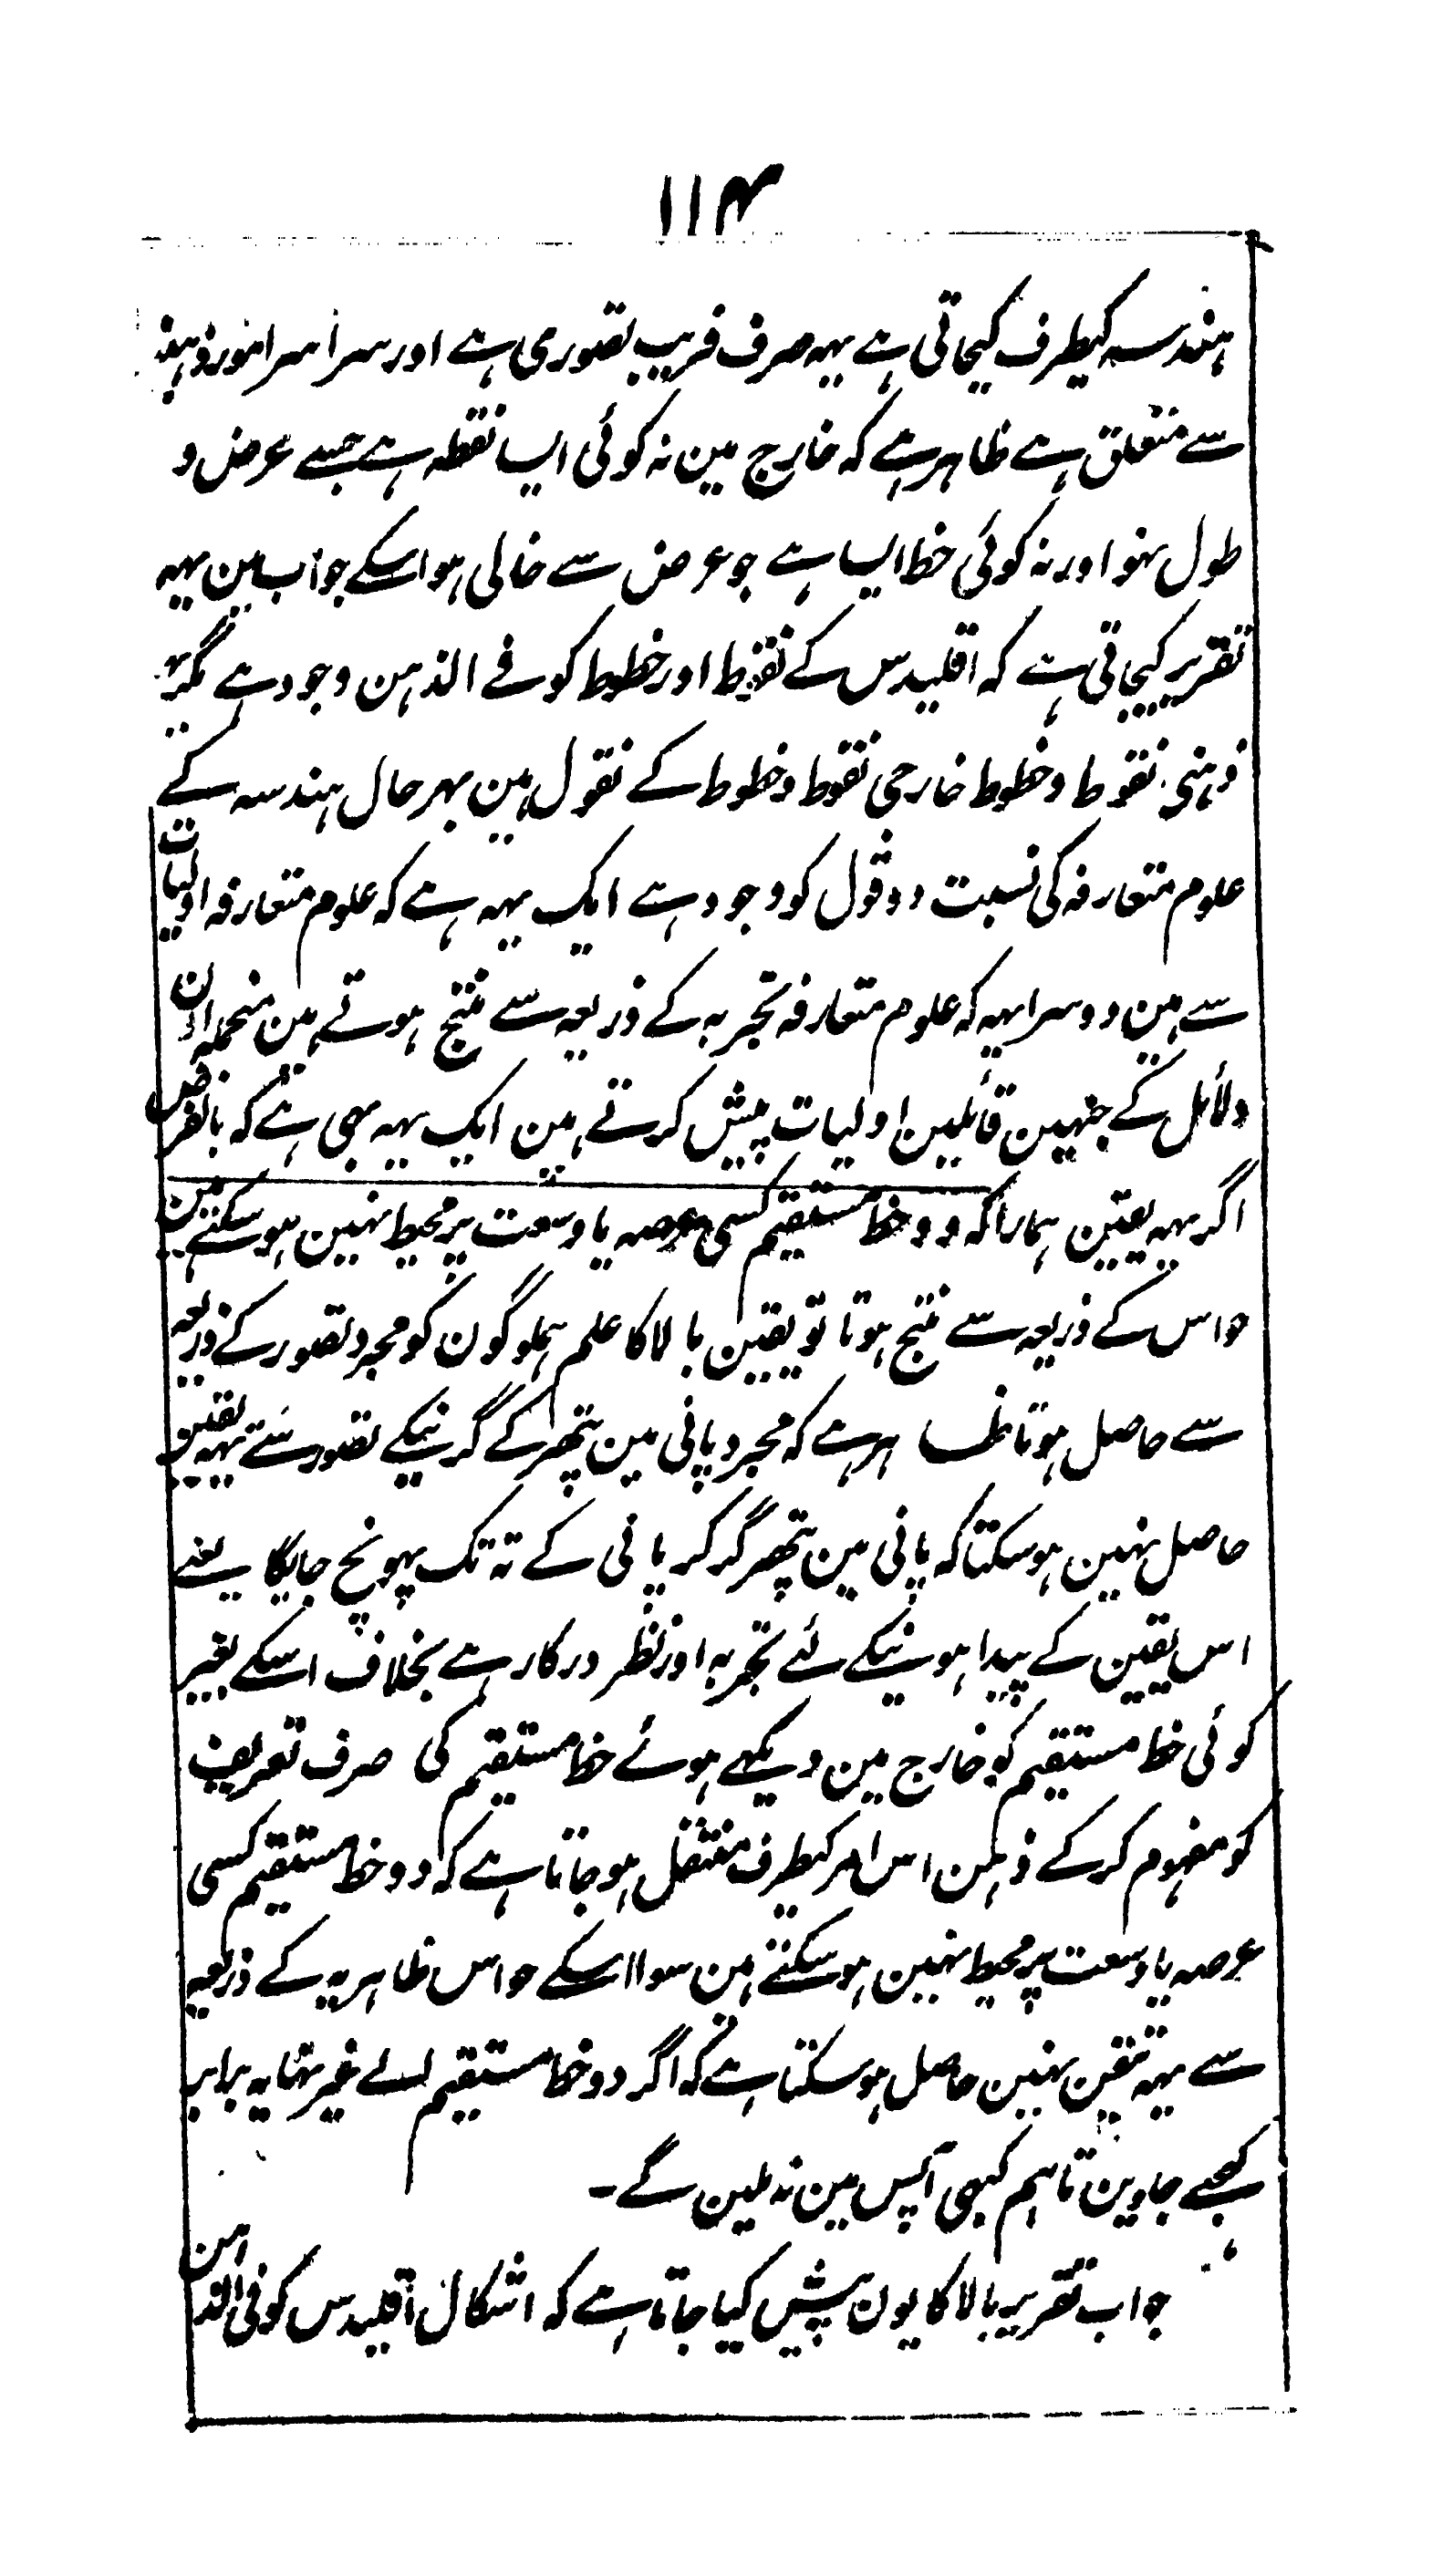 ۱۱۴
ہندسہ کیطرف کیجاتی ہے یہہ صرف فریب تصوری ہے اور سراسر امور ذہنیہ
سے متعلق ہے ظاہر ہے کہ خارج مین نہ کوئی ایسا نقطہ ہے جسے عرض و
طول نہو اور نہ کوئی خط ایسا ہے جو عرض سے خالی ہو اسکے جواب مین یہہ
تقریر کیجاتی ہے کہ اقلیدس کے نقوط اور خطوط کو فے الذہن وجود ہے مگر یہہ
ذہنی نقوط و خطوط خارجی نقوط و خطوط کے نقول ہین بہر حال ہندسہ کے
علوم متعارفہ کی نسبت دو قول کو وجود ہے ایک یہہ ہے کہ علوم متعارفہ اولیات
سے ہین دوسرا یہہ کہ علوم متعارفہ تجربہ کے ذریعہ سے منتج ہوتے ہین منجملہ ان
دلائل کے جنہین قائلین اولیات پیش کرتے ہین ایک یہہ بھی ہے کہ بالفرض
اگر یہہ یقین ہمارا کہ دو خط مستقیم کسی عرصہ یا وسعت پر محیط نہین ہوسکتے ہین
حواس کے ذریعہ سے منتج ہوتا تو یقین بالا کا علم ہملوگون کو مجرد تصور کے ذریعہ
سے حاصل ہوتا ظاہر ہے کہ مجرد پانی مین پتھر کے گرنیکے تصور سے یہہ یقین
حاصل نہین ہوسکتا کہ پانی مین پتھر گر کر پانی کے تہ تک پہونچ جایگا یعنے
اس یقین کے پیدا ہونیکے لئے تجربہ اور نظر درکار ہے بخلاف اسکے بغیر
کوئی خط مستقیم کو خارج مین دیکھے ہوئے خط مستقیم کی صرف تعریف
کو مفہوم کرکے ذہن اس امر کیطرف منتقل ہو جاتا ہے کہ دو خط مستقیم کسی
عرصہ یا وسعت پر محیط نہین ہوسکتے ہین سوا اسکے حواس ظاہریہ کے ذریعہ
سے یہہ یقین نہین حاصل ہوسکتا ہے کہ اگر دو خط مستقیم الے غیر نہایہ برابر
کھچے جاوین تاہم کبھی آپس مین نہ ملین گے۔
جواب تقریر بالا کا یون پیش کیا جاتا ہے کہ اشکال اقلیدس کو فی الذہن